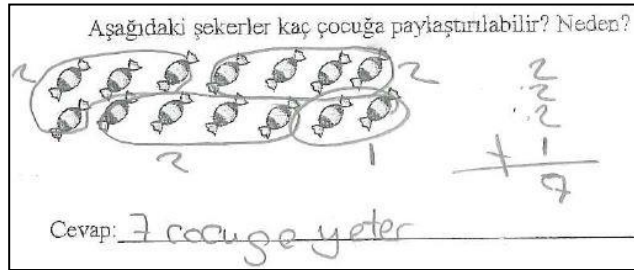 Aşağıdaki şekerler kaç çocuğa paylaştırılabilir? Neden?
2 2 2
2
2
2 1 + 1
7
Cevap: 7 cocuge yeter